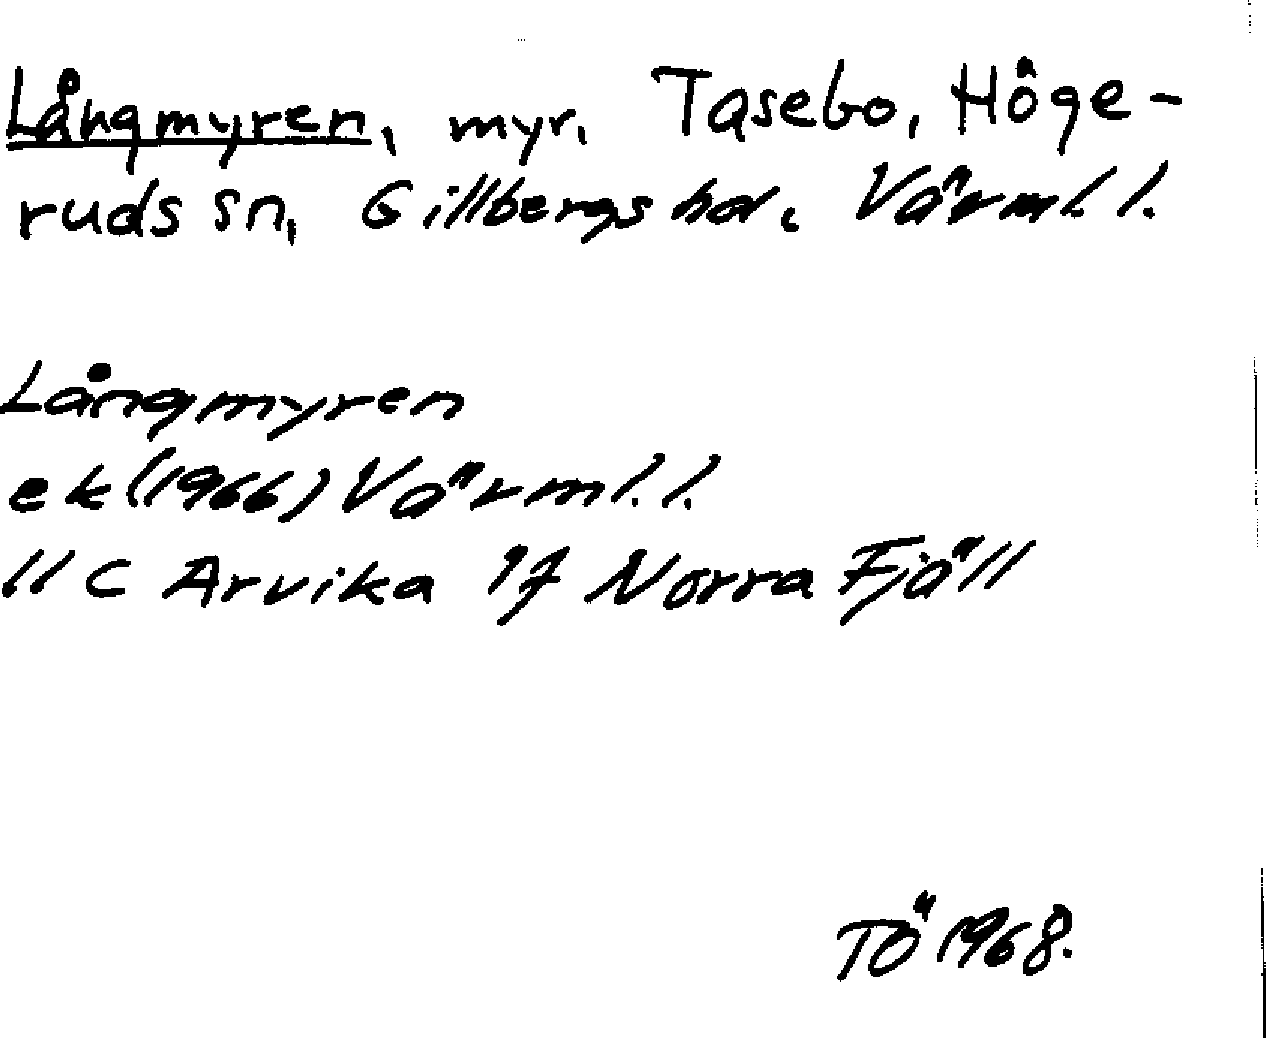 Långmyren, myr, Tasebo, Höge-
ruds sn, Gillbergs hd, Värml. l.
Långmyren
ek (1966) Värml. l.
11 C Arvika 1f Norra Fjäll
TÖ 1968.